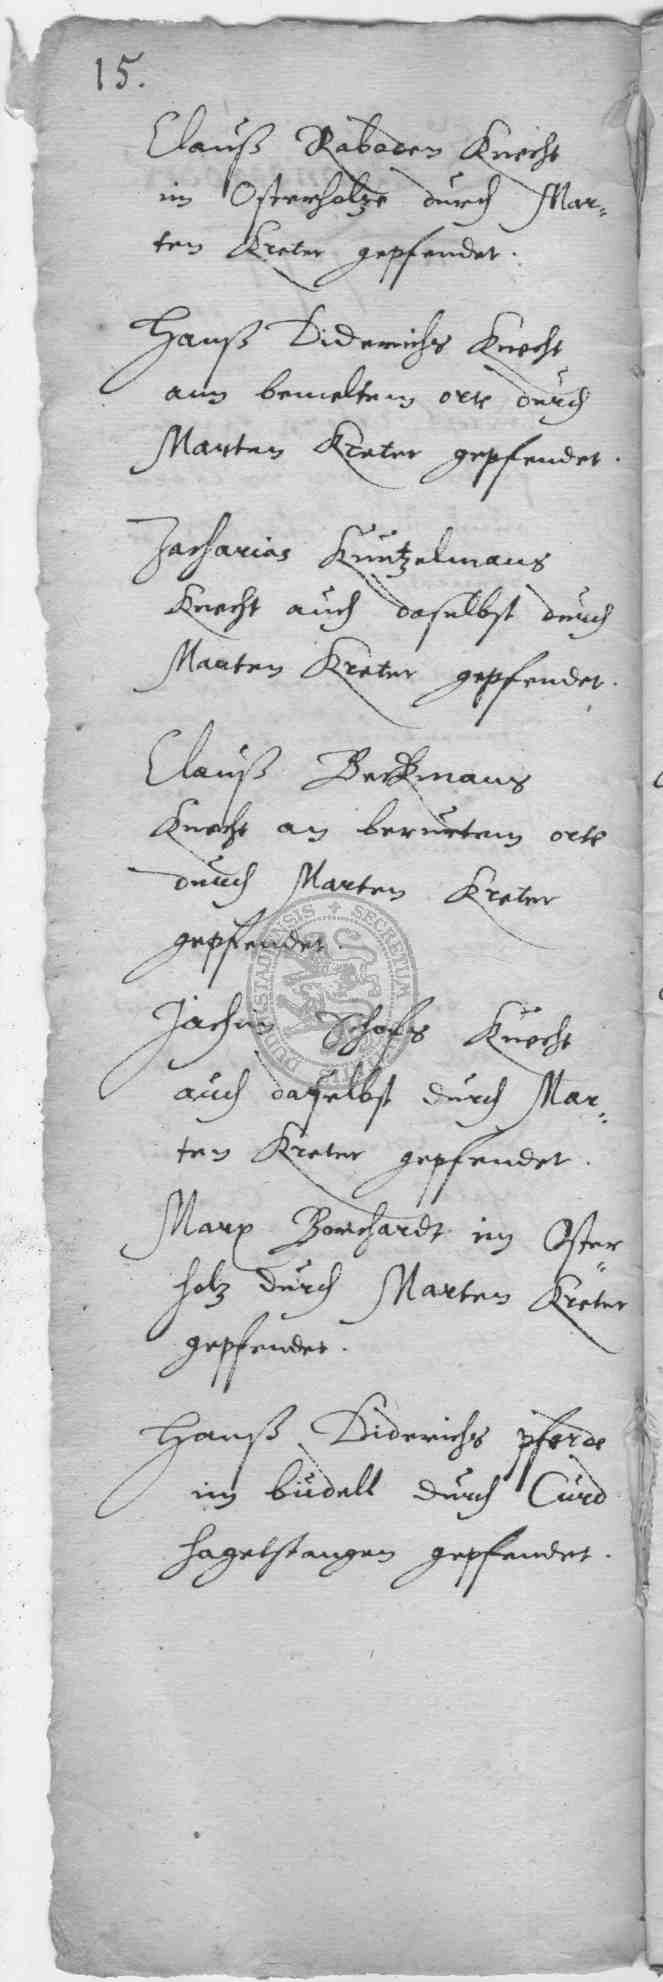 15.
Clauß Raboden Knecht
im Osterholtze durch Mar=
ten Kreter gepfendet.
Hanß Diderichs Knecht
ann bemeltem orte durch
Marten Kreter gepfendet.
Zacharias Kuntzelmans
Knecht auch daselbst durch
Marten Kreter gepfendet.
Clauß Berkmans
Knecht an berurtem orte
durch Marten Kreter
gepfendet.
Jachim Schofs Knecht
auch daselbst durch Mar=
ten Kreter gepfendet.
Marx Borchardt im Oster=
holz durch Marten Kreter
gepfendet.
Hanß Diderichs pferde
im budell durch Curd
Hagelstangen gepfendet.
SECRETUM